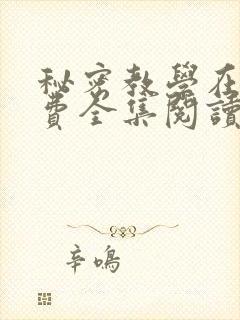 秘密教學在
費全集閱讀
辛鳴